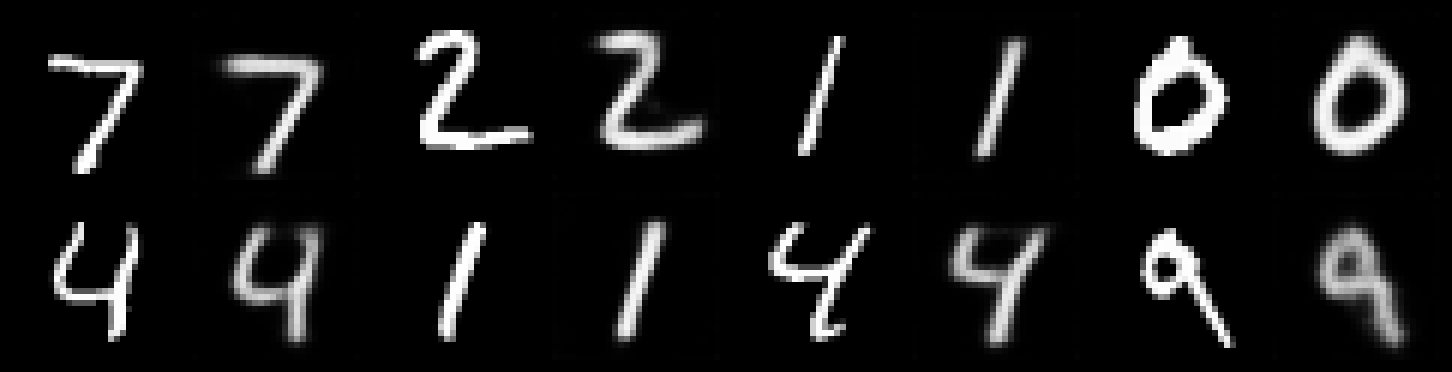 7 7 2 2 1 1 0 0
4 4 1 1 4 4 9 9